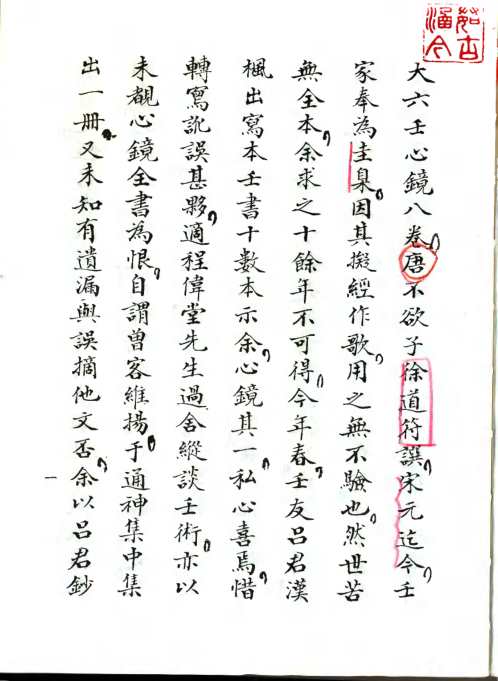 大六壬心鏡八卷唐不欲子徐道符譔宋元迄今壬
家奉為圭臬因其擬經作歌用之無不驗也然世苦
無全本余求之十餘年不可得今年春壬友呂君漢
楓出寫本壬書十數本示余心鏡其一私心喜焉惜
轉寫訛誤甚夥適程偉堂先生過舍縱談壬術亦以
未覩心鏡全書為恨自謂曾客維揚于通神集中集
出一冊又未知有遺漏與誤摘他文否余以呂君鈔
一